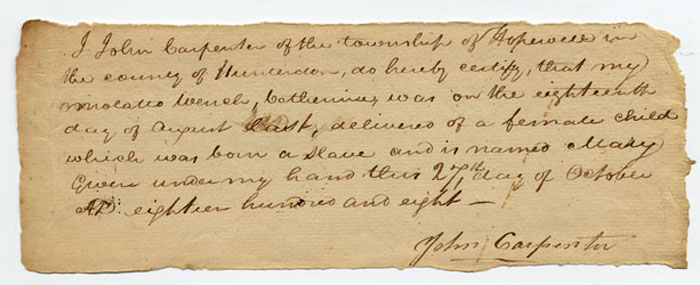 I John Carpenter of the township of Hopewell in
the county of Hunterdon, do hereby certify, that my
molatto wench, Catherine, was on the eighteenth
day of August Last, delivered of a female child
which was born a slave and is named Mary
Given under my hand this 27th day of October
AD: eighteen hundred and eight —
John Carpenter